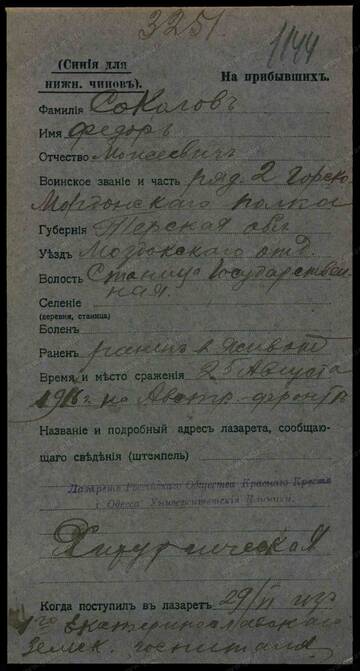 3251
1144
(Синія для
нижн. чиновъ).
На прибывшихъ.
Фамилія Соколовъ
Имя Федоръ
Отчество Моисеевичъ
Воинское званіе и часть ряд. 2 Горско
Моздокскаго полка
Губернія Терская обл.
Уѣздъ Моздокскаго отд.
Волость Станица Государствен
ная.
Селеніе
(деревня, станица)
Боленъ
Раненъ раненъ в животъ
Время и мѣсто сраженія 25 Августа
1916 г. на Австр. фронтѣ
Названіе и подробный адресъ лазарета, сообщаю-
щаго свѣдѣнія (штемпель)
Лазаретъ Россійскаго Общества Краснаго Креста
г. Одесса Университетскія Клиники.
Хирургическая
Когда поступилъ въ лазаретъ 29/ из
1го Екатеринославскаго
Земск. госпиталя